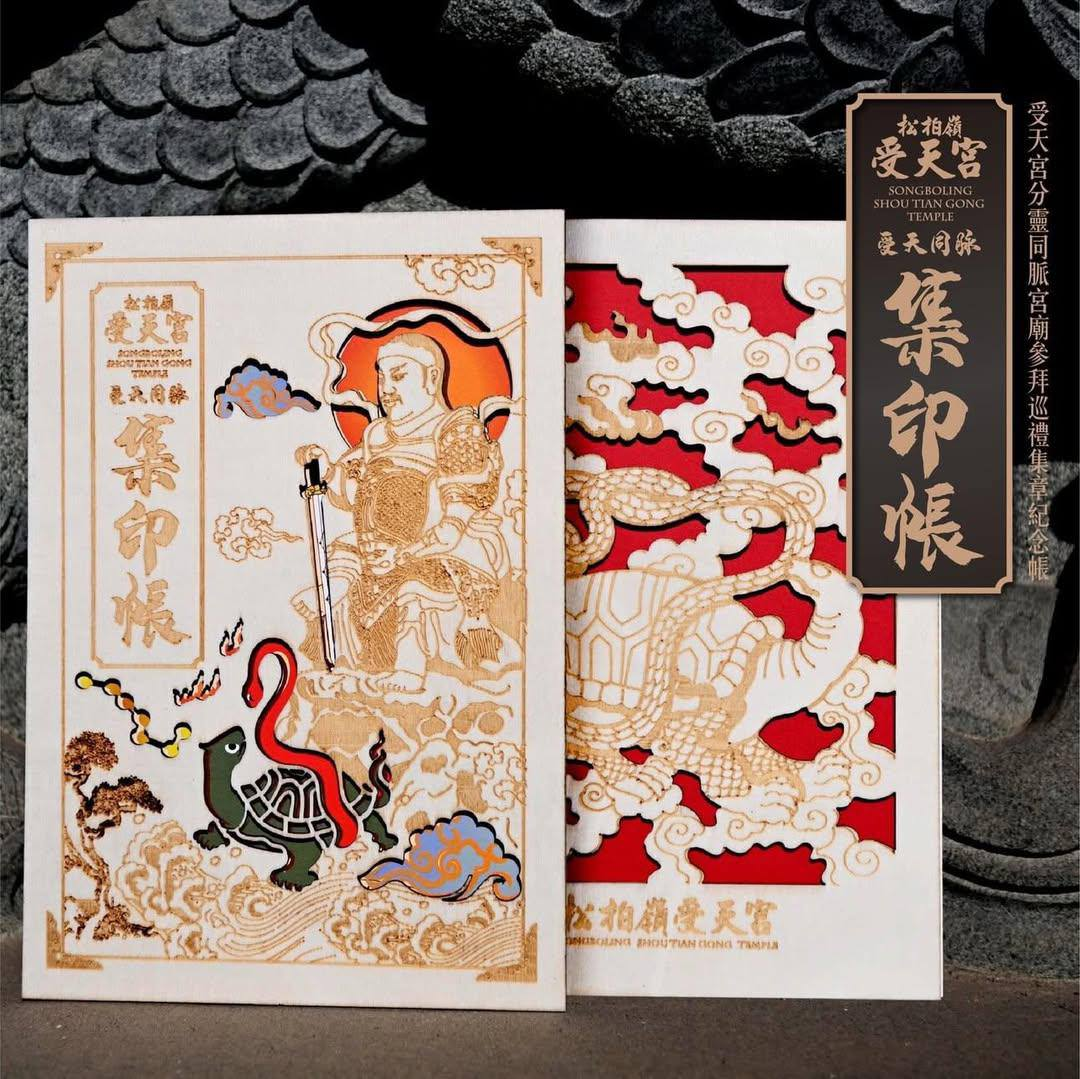 松柏嶺
受天宮
SONGBOLING
SHOU TIAN GONG
TEMPLE
受天同脉
集印帳
受天宮分靈同脈宮廟參拜巡禮集章紀念帳
松柏嶺
受天宮
SONGBOLING
SHOU TIAN GONG
TEMPLE
受天同脉
集印帳
松柏嶺受天宮
SONGBOLING SHOU TIAN GONG TEMPLE